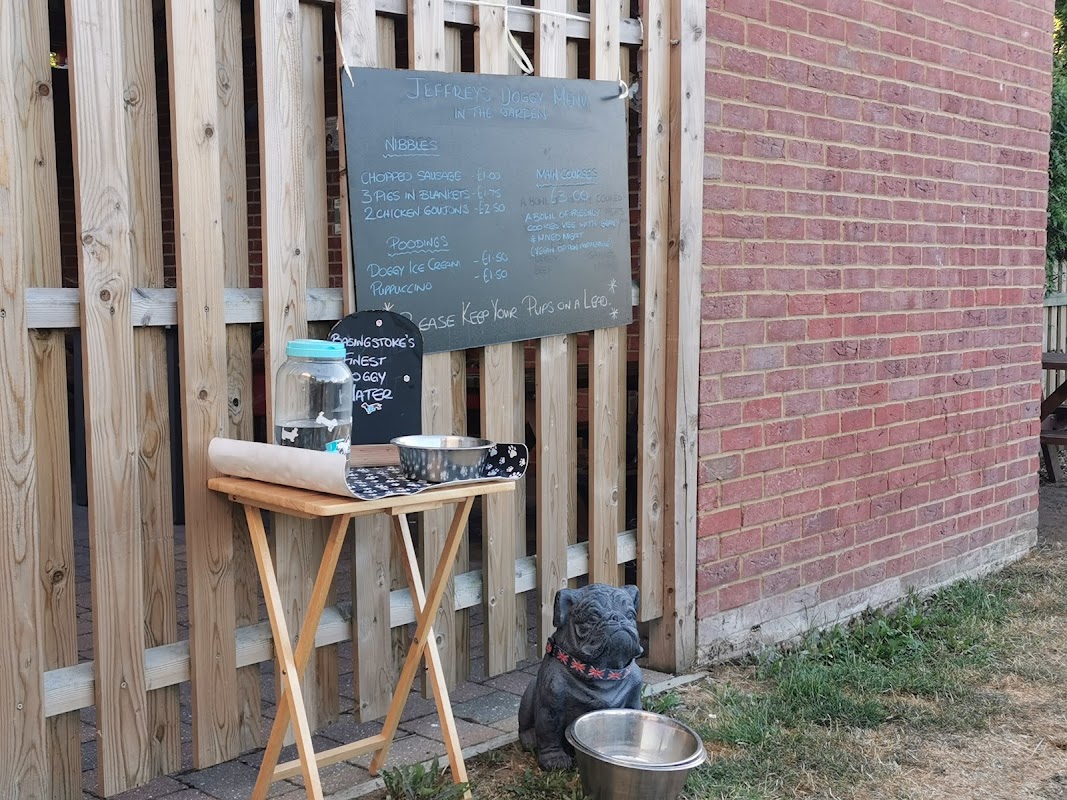 JEFFREYS DOGGY MENU
IN THE GARDEN
NIBBLES
CHOPPED SAUSAGE - £1.00
3 PIGS IN BLANKETS - £1.75
2 CHICKEN GOUJONS - £2.50
POODINGS
DOGGY ICE CREAM - £1.50
PUPPUCCINO - £1.50
MAIN COURSES
£3.00
A BOWL OF FRESHLY
COOKED VEG WITH GRAVY
& MINCED MEAT
(VEGAN OPTION AVAILABLE)
* PLEASE KEEP YOUR PUPS ON A LEAD. *
BASINGSTOKE'S
FINEST
DOGGY
WATER